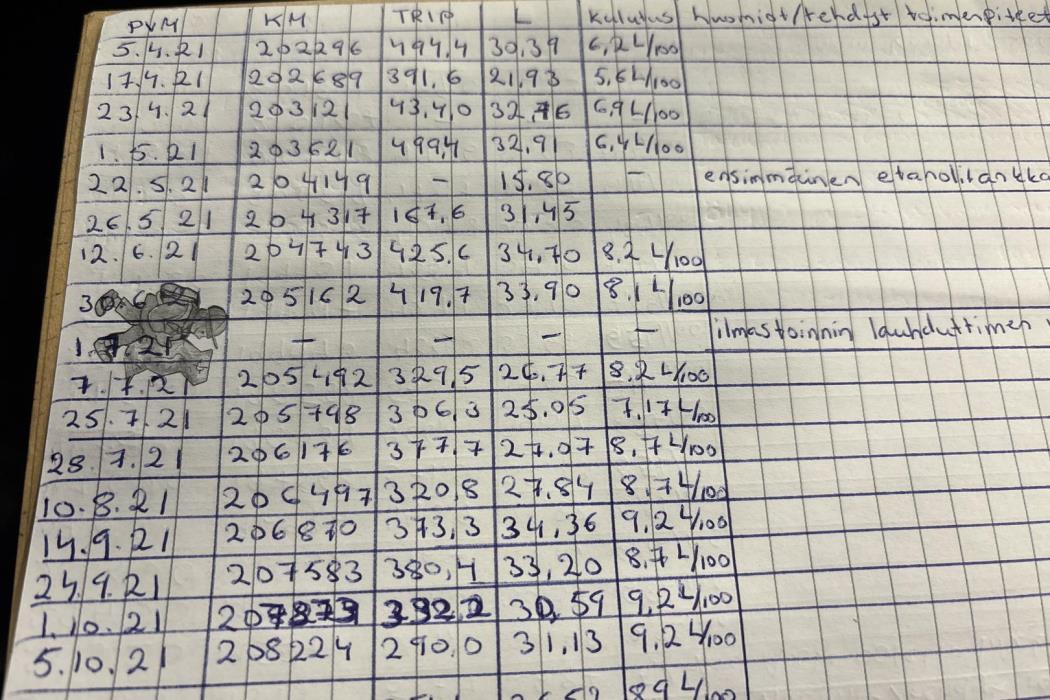 PVM KM TRIP L Kulutus huomiot/tehdyt toimenpiteet
5.4.21 202296 494,4 30,39 6,2 L/100
17.4.21 202689 391,6 21,93 5,6 L/100
23.4.21 203121 43,4,0 32,76 6,9 L/100
1.5.21 203621 499,4 32,91 6,4 L/100
22.5.21 204149 - 15,80 - ensimmäinen etanolitankka
26.5.21 204317 167,6 31,45
12.6.21 204743 425,6 34,70 8,2 L/100
205162 419,7 33,90 8,1 L/100
1.7.21 - - - - ilmastoinnin lauhduttimen
7.7.21 205492 329,5 26,77 8,2 L/100
25.7.21 205798 306,3 25,05 7,17 L/100
28.7.21 206176 377,7 27,07 8,7 L/100
10.8.21 206497 320,8 27,84 8,7 L/100
14.9.21 206870 373,3 34,36 9,2 L/100
24.9.21 207583 380,4 33,20 8,7 L/100
1.10.21 207873 392,2 30,59 9,2 L/100
5.10.21 208224 290,0 31,13 9,2 L/100
8,9 L/100